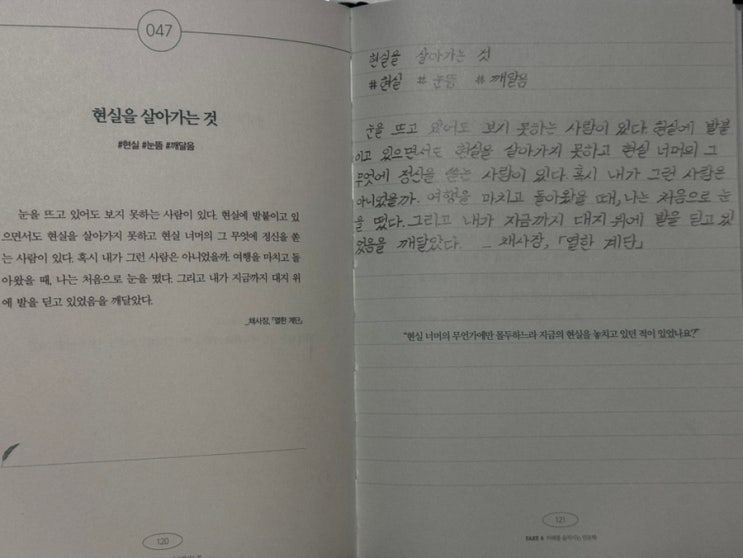 047
현실을 살아가는 것
#현실 #눈뜸 #깨달음
눈을 뜨고 있어도 보지 못하는 사람이 있다. 현실에 발붙이고 있
으면서도 현실을 살아가지 못하고 현실 너머의 그 무엇에 정신을 쏟
는 사람이 있다. 혹시 내가 그런 사람은 아니었을까. 여행을 마치고 돌
아왔을 때, 나는 처음으로 눈을 떴다. 그리고 내가 지금까지 대지 위
에 발을 딛고 있었음을 깨달았다.
_채사장, 『열한 계단』
120
현실을 살아가는 것
#현실 #눈뜸 #깨달음
눈을 뜨고 있어도 보지 못하는 사람이 있다. 현실에 발붙
이고 있으면서도 현실을 살아가지 못하고 현실 너머의 그
무엇에 정신을 쏟는 사람이 있다. 혹시 내가 그런 사람은
아니었을까. 여행을 마치고 돌아왔을 때, 나는 처음으로 눈
을 떴다. 그리고 내가 지금까지 대지 위에 발을 딛고 있
었음을 깨달았다. _ 채사장, 「열한 계단」
"현실 너머의 무언가에만 몰두하느라 지금의 현실을 놓치고 있던 적이 있었나요?"
121